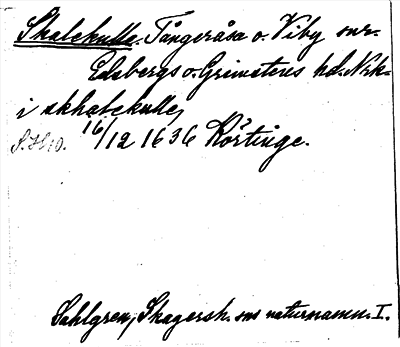 Skalekulle. Tångeråsa o. Viby snr.
Edsbergs o. Grimstens hd. Nrk.
i skhalekulle,
16/12 1636 Körtinge.
Sahlgren, Skagersh. sns naturnamn. I.